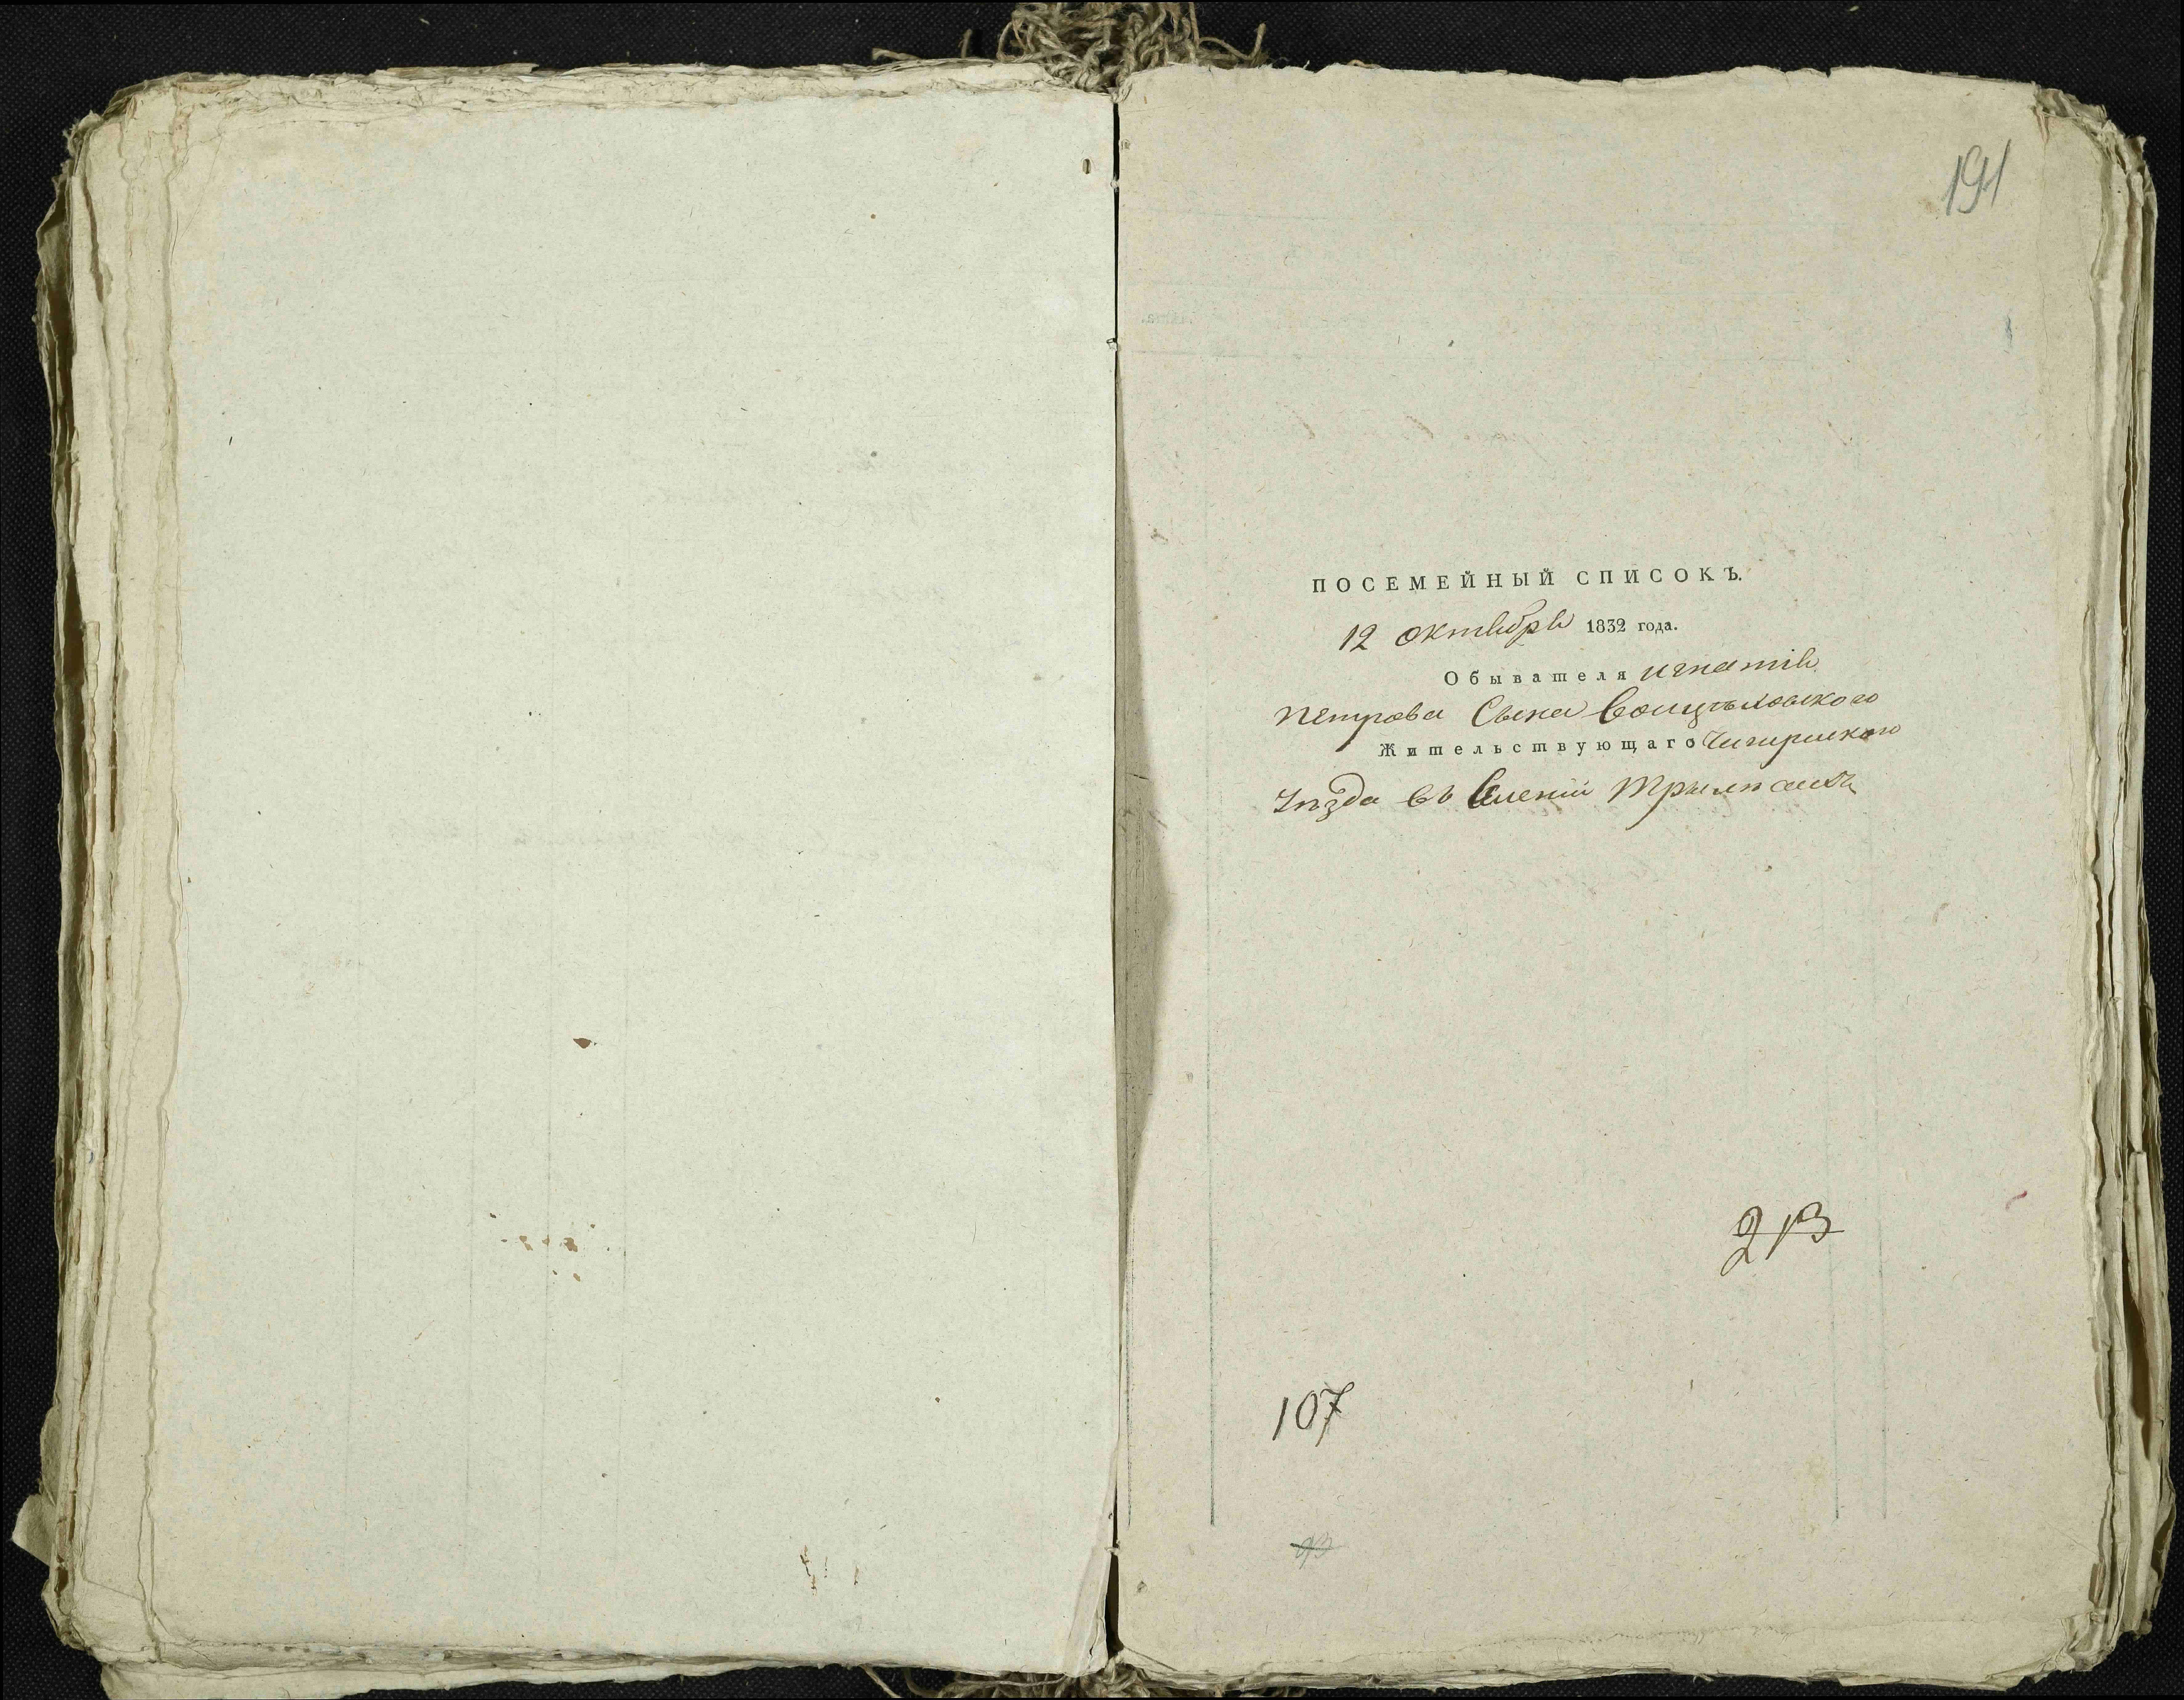 191
ПОСЕМЕЙНЫЙ СПИСОКЪ.
12 октября 1832 года.
Обывателя игнатія
Петрова Сына
Жительствующаго Чигиринского
Уѣзда въ Селеніи
213
107
93